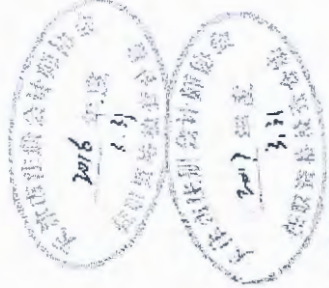 注册会计师协会
2016 年度
3.31
任职资格检查合格
注册会计师协会
2017 年度
3.31
任职资格检查合格